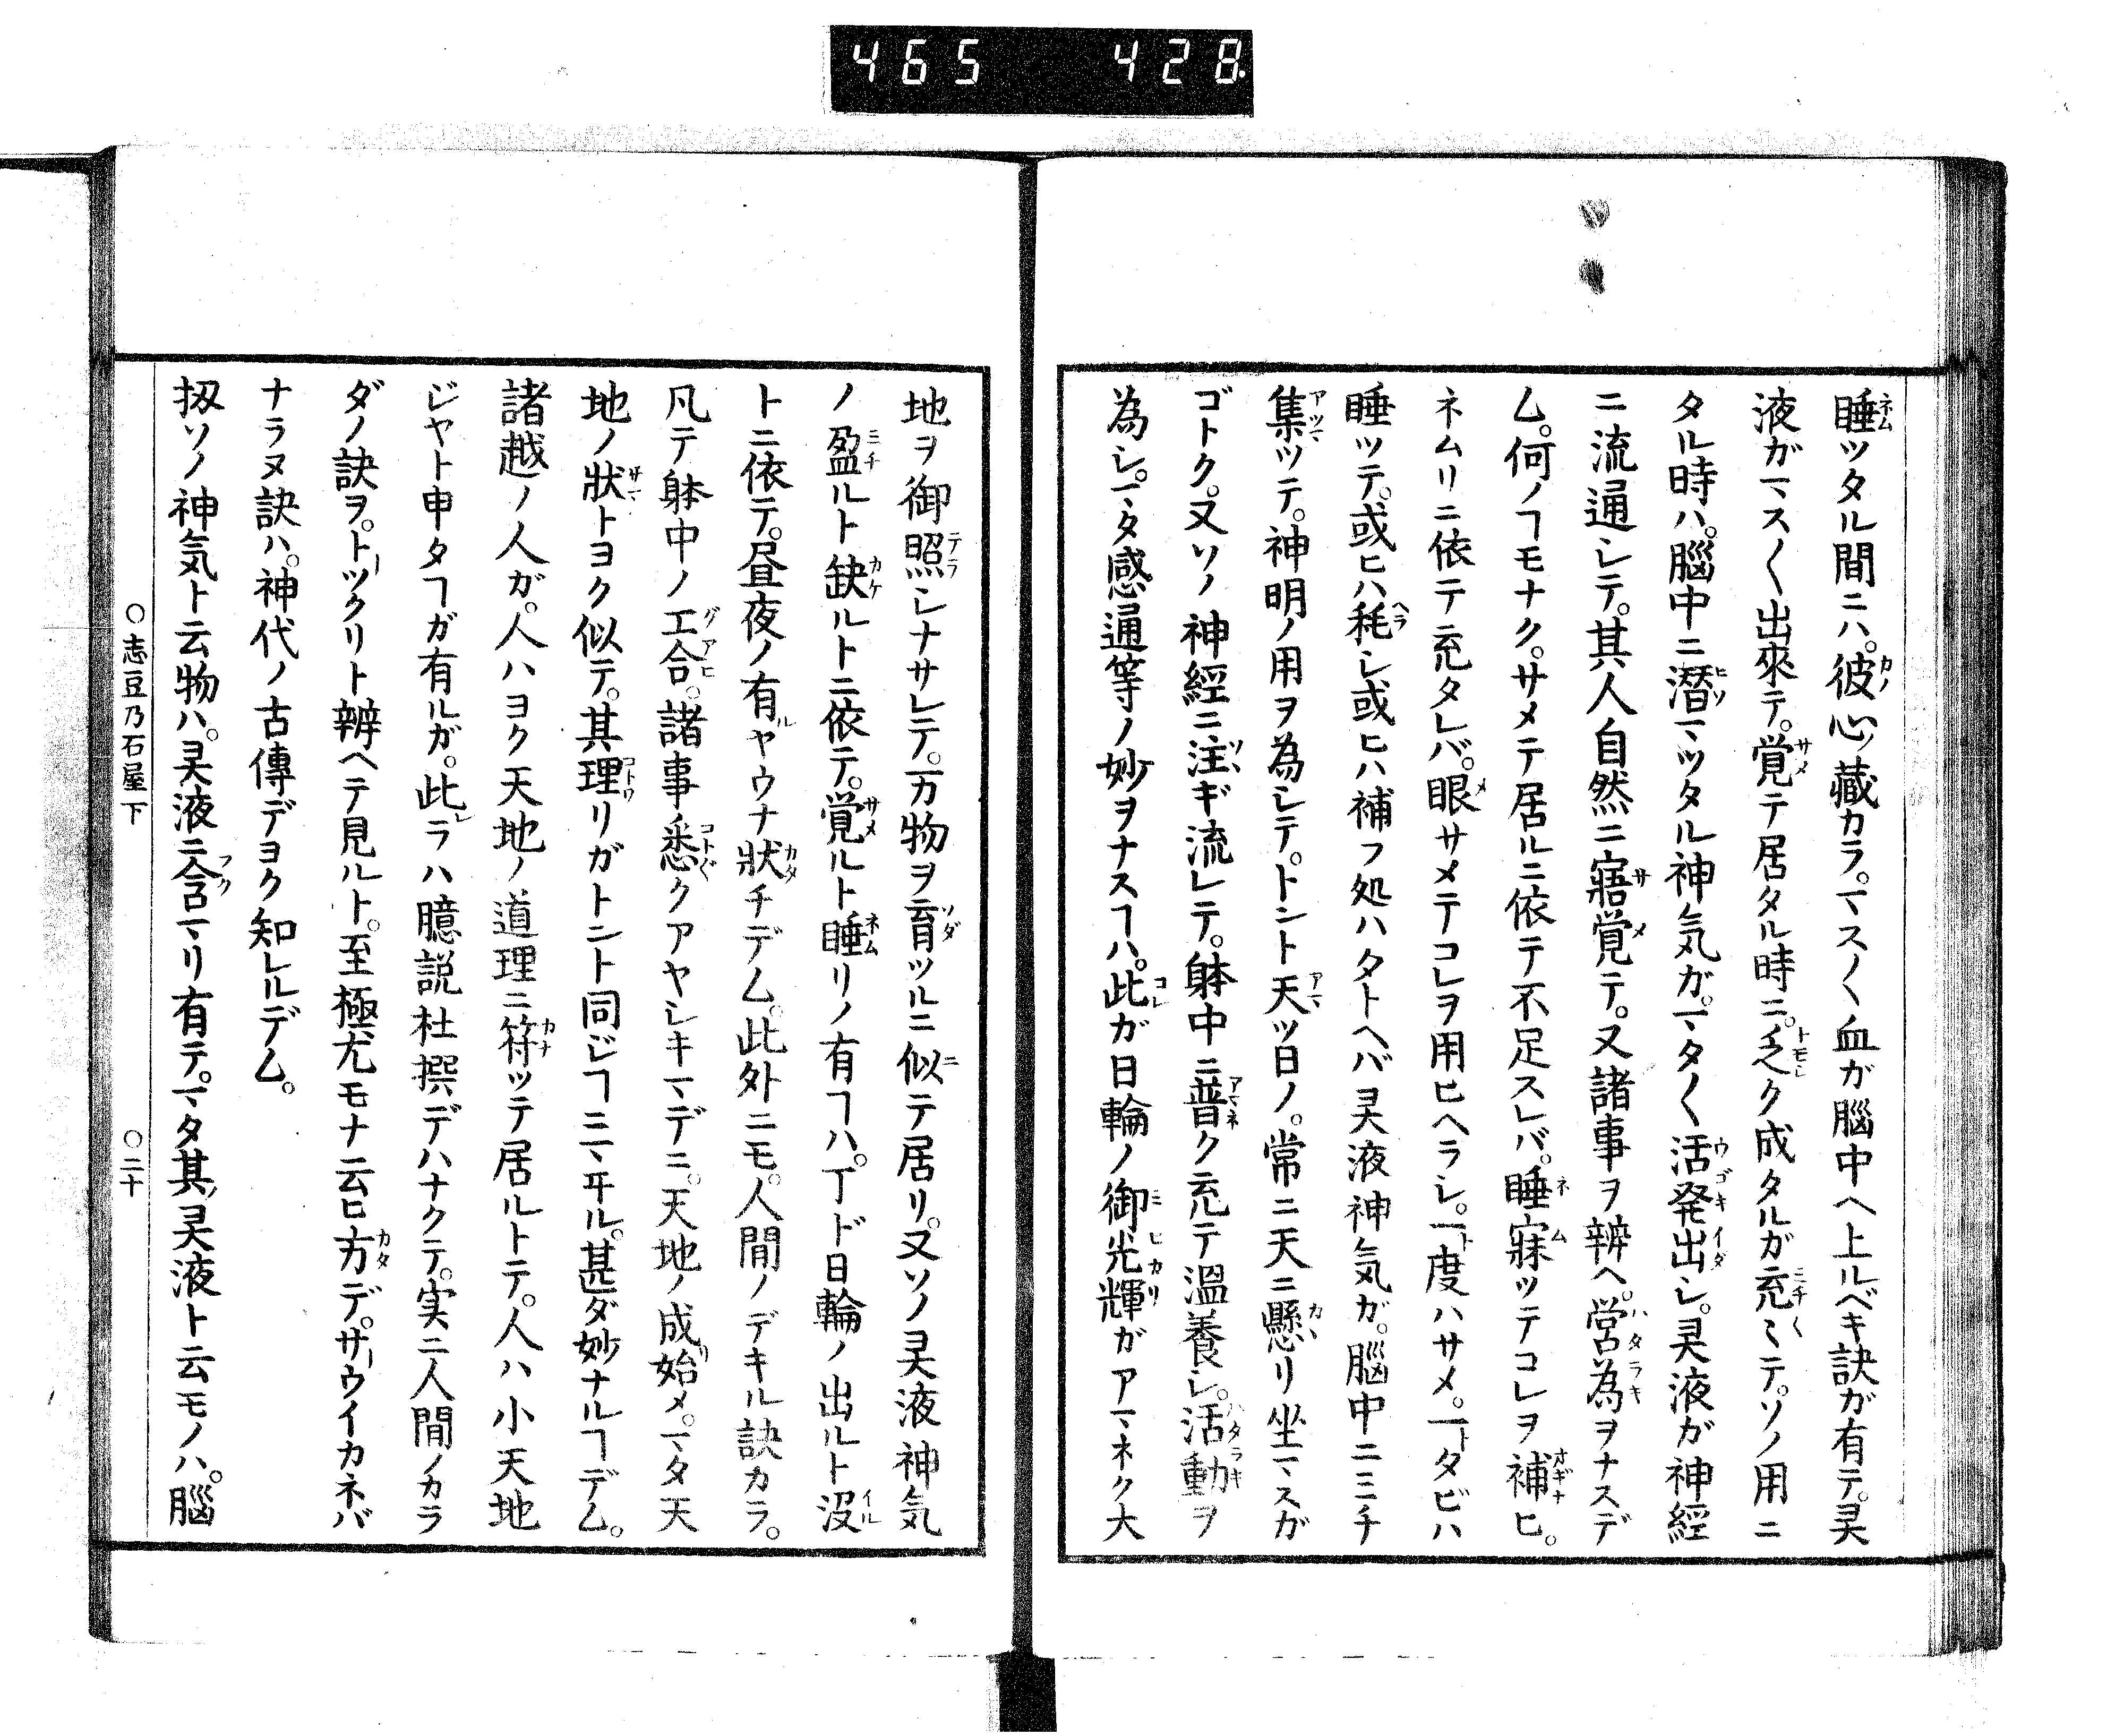 465 428
睡ツタル間ニハ。彼心ノ藏カラ。マス〱血ガ腦中ヘ上ルベキ訣ガ有テ。灵
液ガマス〱出來テ。覚テ居タル時ニ。乏ク成タルガ充〻テ。ソノ用ニ
タル時ハ。腦中ニ潜マツタル神気ガ。マタ〱活発出シ。灵液ガ神經
ニ流通シテ。其人自然ニ寤覚テ。又諸事ヲ辨ヘ。営為ヲナスデ
ム。何ノヿモナク。サメテ居ルニ依テ不足スレバ。睡寐ツテコレヲ補ヒ。
ネムリニ依テ充タレバ。眼サメテコレヲ用ヒヘラシ。一度ハサメ。一タビハ
睡ツテ。或ヒハ耗シ或ヒハ補フ処ハタトヘバ灵液神気ガ。腦中ニミチ
集ツテ。神明ノ用ヲ為シテ。トント天ツ日ノ。常ニ天ニ懸リ坐マスガ
ゴトク。又ソノ神經ニ注ギ流レテ。躰中ニ普ク充テ溫養シ。活動ヲ
為シ。マタ感通等ノ妙ヲナスヿハ。此ガ日輪ノ御光輝ガアマネク大
地ヲ御照シナサレテ。万物ヲ育ツルニ似テ居リ。又ソノ灵液神気
ノ盈ルト缺ルトニ依テ。覚ルト睡リノ有ヿハ。丁ド日輪ノ出ルト沒
トニ依テ。昼夜ノ有ヤウナ狀チデム。此外ニモ。人間ノデキル訣カラ。
凡テ躰中ノ工合。諸事悉クアヤシキマデニ。天地ノ成始メ。マタ天
地ノ狀トヨク似テ。其理リガトント同ジヿニヽヰル。甚ダ妙ナルヿデム。
諸越ノ人ガ。人ハヨク天地ノ道理ニ符ツテ居ルトテ。人ハ小天地
ジヤト申タヿガ有ルガ。此ラハ臆説杜撰デハナクテ。実ニ人間ノカラ
ダノ訣ヲ。トツクリト辨ヘテ見ルト。至極尤モナ云ヒ方デ。サウイカネバ
ナラヌ訣ハ。神代ノ古傳デヨク知レルデム。
扨ソノ神気ト云物ハ。灵液ニ含マリ有テ。マタ其灵液ト云モノハ。腦
○志豆乃石屋下 ○二十